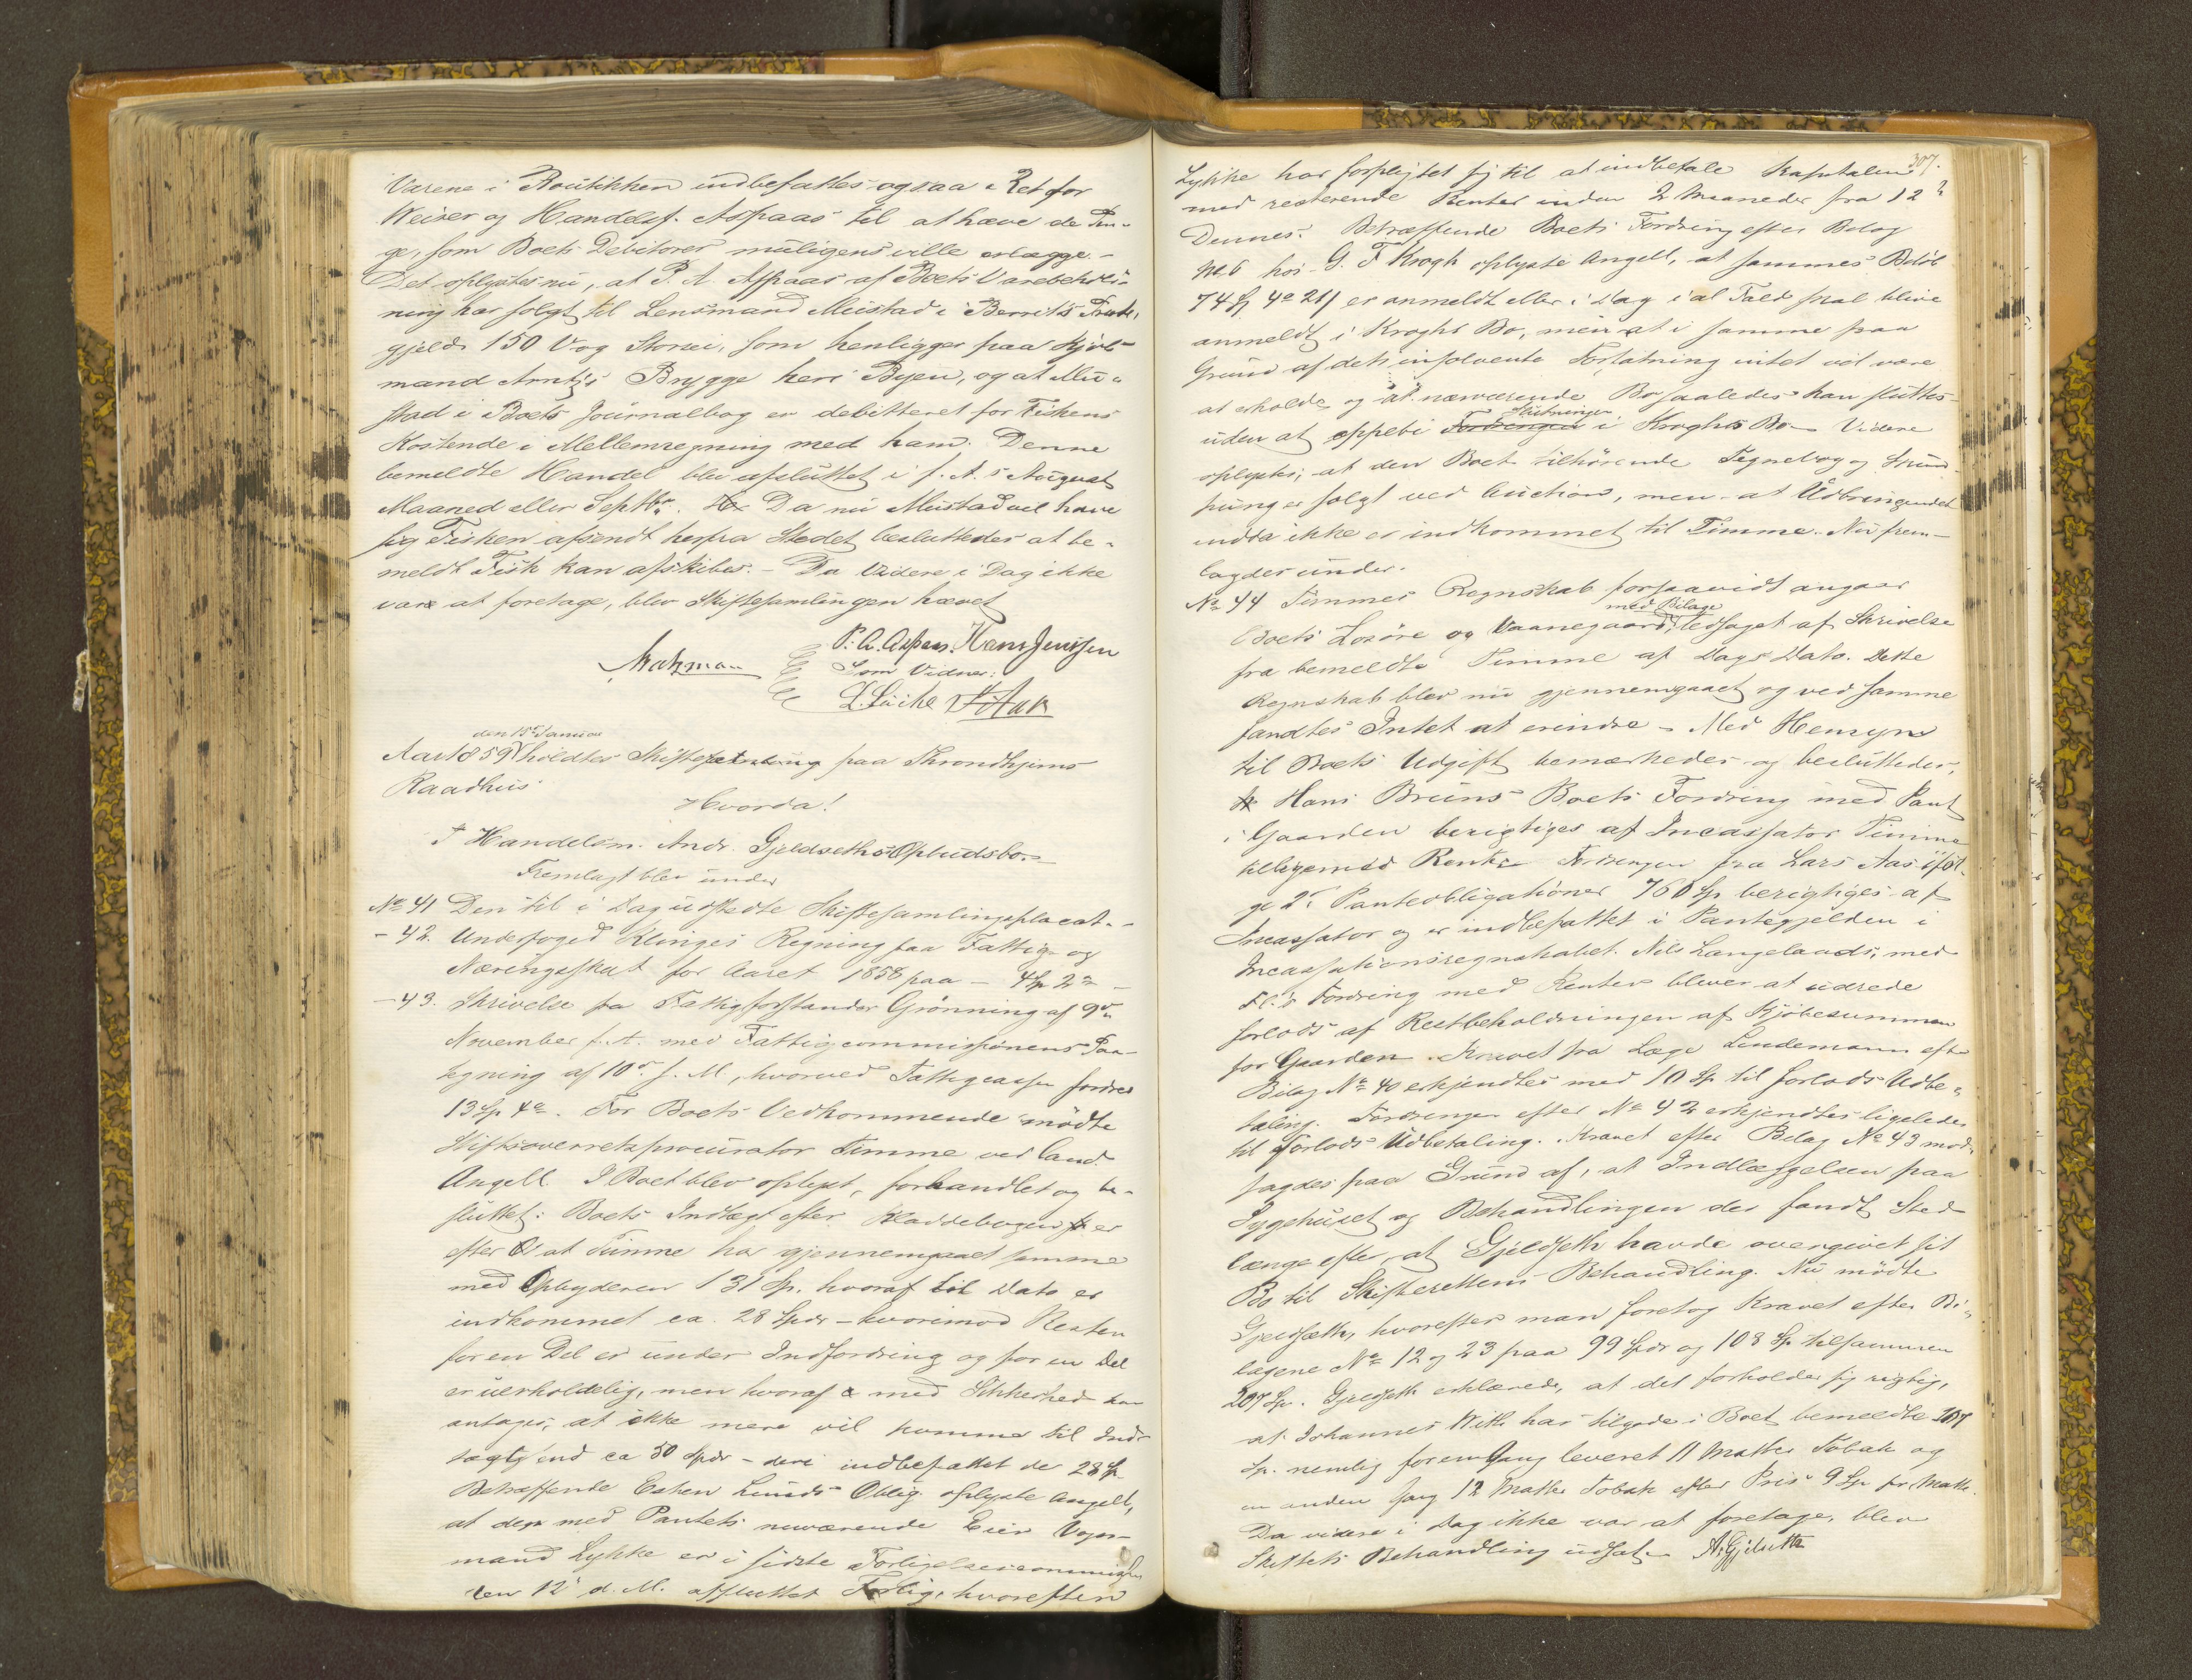 Varene i Boutikken indbefattes ogsaa Ret for
Weiser og Handelsf. Aspaas til at hæve de Pen-
ge, som Boets Debitorer muligens ville erlægge. -
Det oplystes nu, at P. A. Aspaas af Boets Varebehold-
ning har solgt til Lensmand Mustad i
gjeld 150 Vog Storsei, som henligger paa Kjøb-
mand Arntz's Brygge her i Byen, og at Mu-
stad i Boets Journalbog er debitteret for Fiskens
Kostende i Mellemregning med ham. Denne
bemeldte Handel blev afsluttet i f. A.s August
Maaned eller Septbr. Da nu Mustad vil have
sig Fisken afsendt herfra Stedet besluttedes at be-
meldt Fisk kan afskibes. - Da Videre i Dag ikke
var at foretage, blev Skiftesamlingen hævet
P. A. Aspaas. Hans Jenssen
Som Vidner:
L. Lücke
den 15de Januar
Aar 1859 holdtes Skiftesamling paa Throndhjems
Raadhus
Hvorda!
I Handelsm. Andr. Gjeldseths Opbudsbo. -
Fremlagt blev under
No 41 Den til i Dag udstedte Skiftesamlingsplacat. -
- 42. Underfoged Klinges Regning paa Fattig- og
Næringsskat for Aaret 1858 paa - 4 Sp 2 -
- 43. Skrivelse fra Fattigforstander Grønning af 9de
November f. A. med Fattigcommissionens Paa-
tegning af 10de f. M, hvorved Fattigcassen fordrer
13 Sp 4. For Boets Vedkommende mødte
Stiftsoverretsprocurator Timme ved Cand.
Angell. I Boet blev oplyst, forhandlet og be-
sluttet: Boets Indtægt efter Kladdebogen er
efter at Timme har gjennemgaaet samme
med Opbyderen 131 Sp. hvoraf til Dato er
indkommet ca. 28 Spdr - hvorimod Resten
for en Del er under Indfordring og for en Del
er uerholdelig, men hvoraf med Sikkerhed kan
antages, at ikke mere vil komme til Ind-
tægt end ca 50 Spdr - deri indbefattet de 28 Sp
Betræffende Esten Lunds Oblig. oplyste Angell,
at der med Pantets nuværende Eier Vogn-
mand Lykke er i sidste Forligelsescommission
den 12te d. M. afsluttet Forlig, hvorefter
307.
Lykke har forpligtet sig til at indbetale Kapitalen
med resterende Renter inden 2 Maaneder fra 12te
Dennes. Betræffende Boets Fordring efter Bilag
No 6 hos G. F Krogh oplyste Angell, at sammes Beløb
74 Sp 4 21 er anmeldt eller i Dag i al Fald skal blive
anmeldt i Kroghs Bo, men at i samme paa
Grund af dets insolvente Forfatning intet vil være
at erholde og at nærværende Bo saaledes kan sluttes
uden at oppebi Slutningen i Kroghs Bo. Videre
oplystes, at den Boet tilhørende Tegnebog og
pung er solgt ved Auction, men at Udbringendet
endda ikke er indkommet til Timme. Nu frem-
lagdes under.
No 44 Timmes Regnskab forsaavidt angaar
med Bilage
Boets Løsøre og Vaanegaard, ledsaget af Skrivelse
fra bemeldte Timme af Dags Dato. Dette
Regnskab blev nu gjennemgaaet og ved samme
fandtes Intet at erindre - Med Hensyn
til Boets Udgift bemærkedes og besluttedes,
Hans Bruns Boets Fordring med Pant
i Gaarden berigtiges af Incassator Timme
tilligemed Renter Fordringen fra Lars Aas iføl-
ge 2de Panteobligationer 760 Sp berigtiges af
Incassator og er indbefattet i Pantegjelden i
Incassationsregnskabet. Nils Langelands, med
Fl.s Fordring med Renter bliver at udrede
forlods af Restbeholdningen af Kjøbesummen
for Gaarden. Kravet fra Læge Lindemann efter
Bilag No 40 erkjendtes med 10 Sp til forlods Udbe-
taling. Fordringen efter No 42 erkjendtes ligeledes
til forlods Udbetaling. Kravet efter Bilag No 43 mod-
sagdes paa Grund af, at Indlæggelsen paa
Sygehuset og Behandlingen der fandt Sted
længe efter, at Gjeldseth havde overgivet sit
Bo til Skifterettens Behandling. Nu mødte
Gjeldseth, hvorefter man foretog Kravet efter Bi-
lagene No 12 og 23 paa 99 Spdr og 108 Sp tilsammen
207 Sp. Gjeldseth erklærede, at det forholder sig rigtig,
at Johannes With har tilgode i Boet bemeldte 207
Sp. nemlig for en Gang leveret 11 Matter Tobak og
en anden Gang 12 Matter Tobak efter Pris 9 Sp pr Matte.
Da videre i Dag ikke var at foretage, blev
Skiftets Behandling udsat. A. Gjelseth